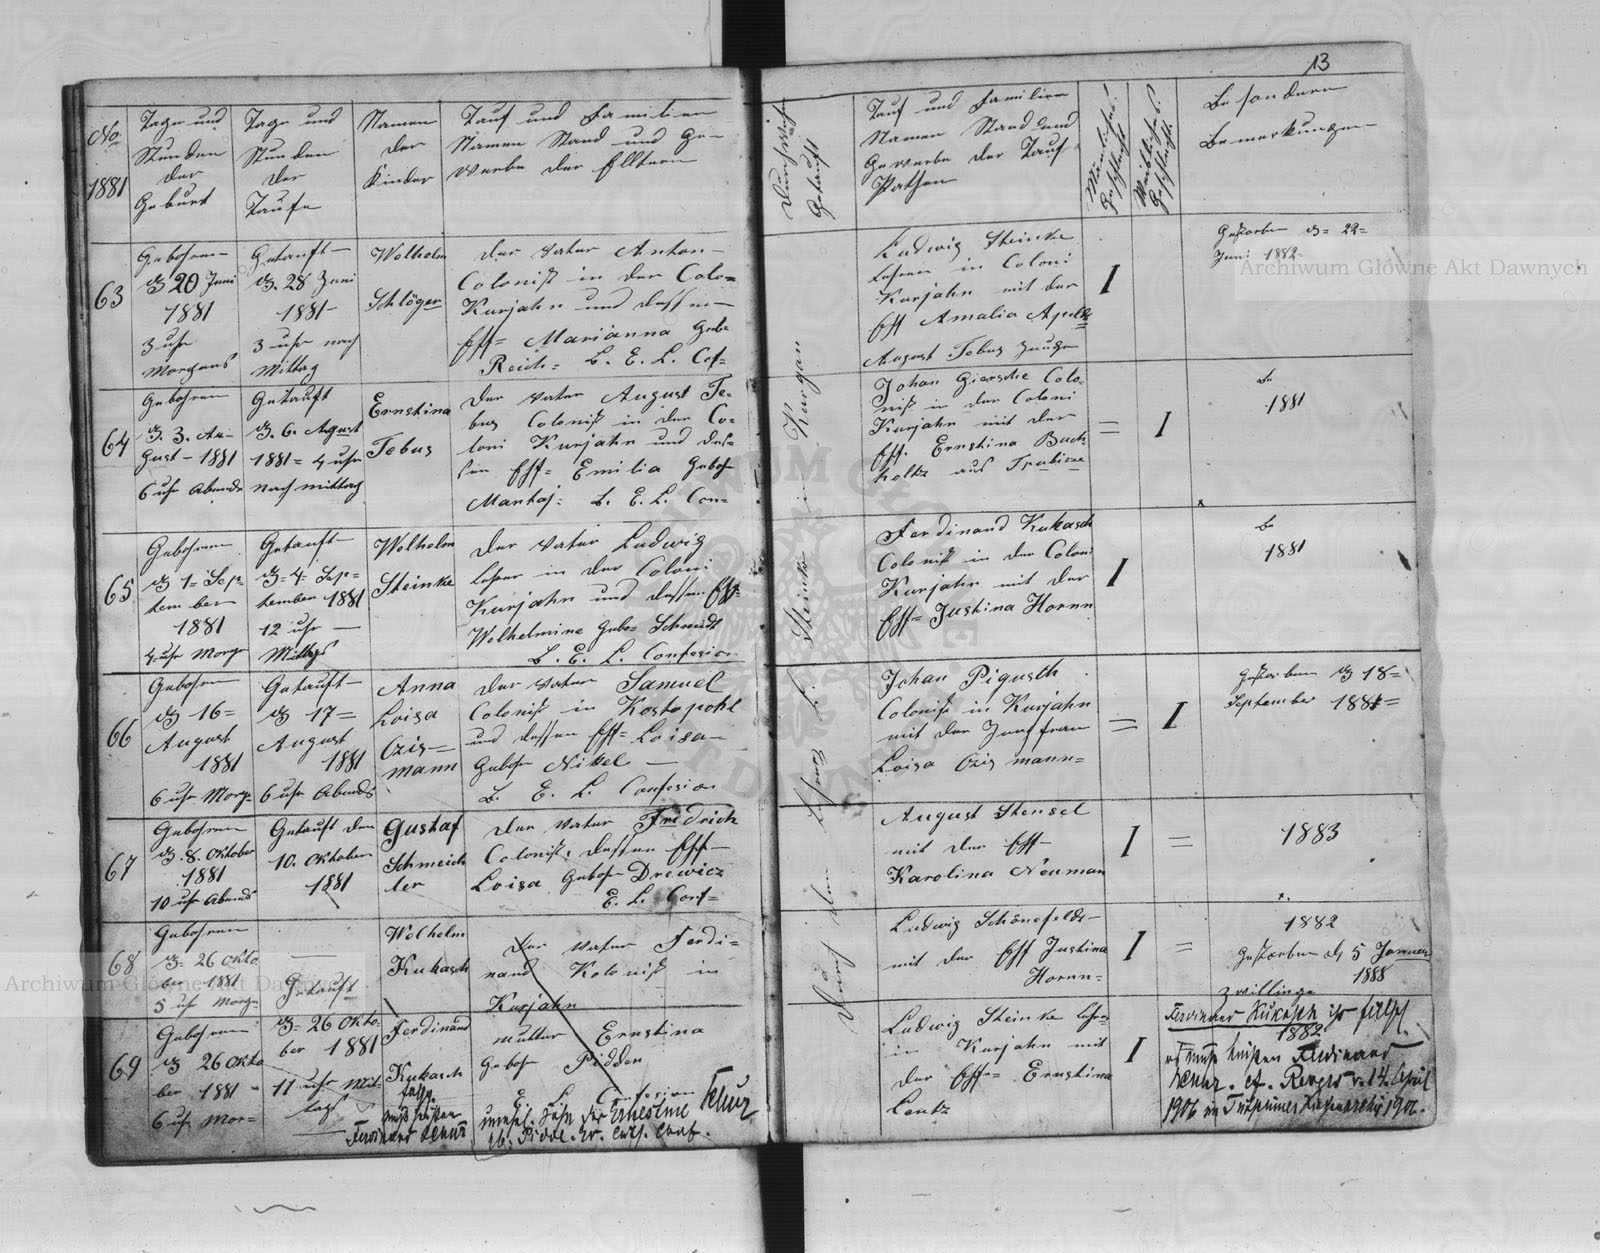 13
No
1881
Tage und
Stunden
der
Geburt
Tage und
Stunden
der
Taufe
Namen
der
Kinder
Tauf und Familien
Namen Stand und Ge-
werbe der Elltern
Durch wehn
Getauft
Tauf und Familien
Namen Stand und
Gewerbe der Tauf
Pathen
Mänliches
Geschlecht
Weibliches
Geschlecht
Besondere
Bemerkungen
63
Gebohren
d. 20 Juni
1881
3 uhr
Morgens
Getauft
d. 28 Juni
1881
3 uhr nach
Mittag
Welhelm
Schlöger
der vater Anton
Colonist in der Colo=
Kurjahn und dessen
Eff= Marianna Geb=
Reich= B. E. L. Cof=
Ludwig Steinke
Lehrer in Coloni
Kurjahn mit der
Eff Amalia Apelt
August Tobus zeuge
I
Gestorben d= 22=
Juni 1882
64
Gebohren
d. 3. Au-
gust 1881
6 uhr Abends
Getauft
d. 6. August
1881= 4 uhr
nach mittag
Ernstina
Tebus
der vater August Te=
bus Colonist in der Co=
loni Kurjahn und des=
sen Eff= Emilia Geboh
Mantaj= B. E. L. Con=
Johan Giersche Colo=
nist in der Coloni
Kurjahn mit der
Eff. Ernstina Buch
holtz aus
=
I
1881
65
Gebohren
d 1= Sep=
tember
1881
4 uhr Morge
Getauft
d= 4= Sep=
tember 1881
12 uhr
Mittags
Welhelm
Steinke
der vater Ludwig
Lehrer in der Coloni
Kurjahn und dessen Eff=
Welhelmine Gebo= Schmidt
B. E. L. Confesion
Ferdinand Kukasch
Colonist in der Coloni
Kurjahn mit der
Eff= Justina Hornn
I
1881
66
Gebohren
d 16=
August
1881
6 uhr Morge
Getauft
d 17=
August
1881
6 uhr Abends
Anna
Loisa
Czis=
mann
der vater Samuel
Colonist in Kostopohl
und dessen Eff= Loisa
Geboh Nikel
B. E. L. Confesion
Johan Pigusch
Colonist in Kurjahn
mit der Jungfrau
Loisa Czismann=
=
I
Gestorben d 18=
September 1881=
67
Gebohren
d. 8. Oktober
1881
10 uhr Abends
Getauft den
10. Oktober
1881
Gustaf
Schmeich
ler
der vater Fredrich
Colonist, dessen Eff
Loisa Geboh Drewicz
E. L. Conf=
August Stensel
mit der Eff
Karolina Neuman
I
=
1883
68
Gebohren
d= 26 Okto
ber 1881
5 uhr Morge
Getauft
Welhelm
Kukasch
der vater Ferdi=
nand Kolonist in
Kurjahn
Ludwig Schönefeldt
mit der Eff Justina
Hornn=
I
=
1882
Gestorben d 5 Januar
1888
Zwillinge
69
Gebohren
d 26 Okto
ber 1881
6 uhr Mor=
d= 26 Okto=
ber 1881
11 uhr Mit-
tags
Ferdinand
Kukasch
falsch
muß heißen
Ferdinand Lenz
mutter Ernstina
Geboh Pidden
E. L. Confesion
unehel. Sohn der Ernestine
Ludwig Steinke Lehr=
in Kurjahn mit
der Eff= Ernstina
Lentz
I
Ferdinand Kukasch ist falsch
1882
es muß heißen Ferdinand
14 April
1906
Durch den Lehrer L. Steinke in Kurgan
Archiwum Główne Akt Dawnych
Archiwum Główne Akt Dawnych